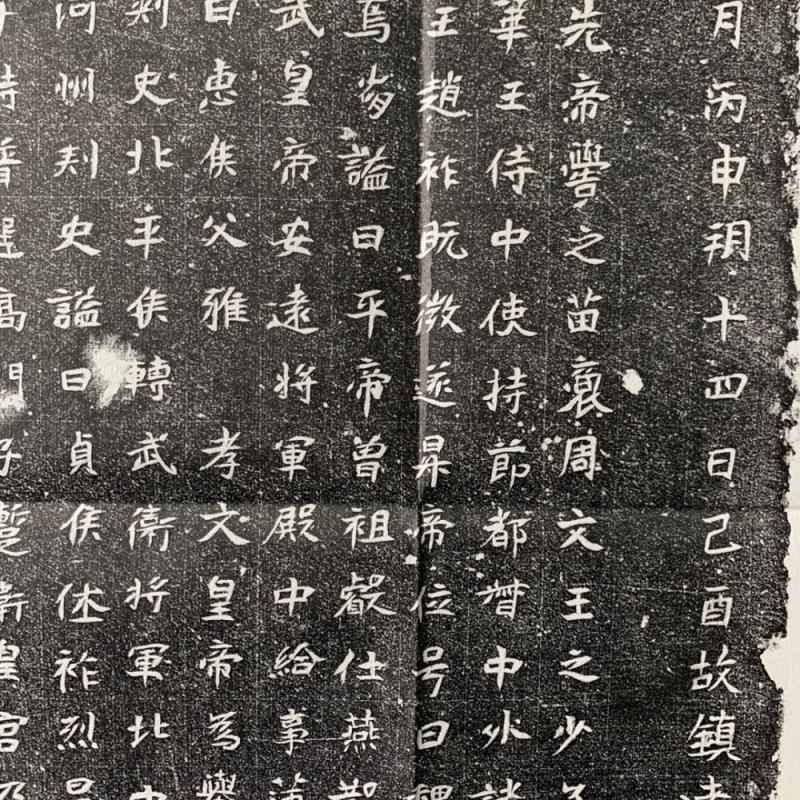 月丙申朔十四日己酉故鎮
先帝嚳之苗裔周文王之少
華王侍中使持節都督中外諸
王趙祚既微遂昇帝位号曰魏
焉崩謚曰平帝曾祖叡仕燕
武皇帝安遠將軍殿中給事
曰惠侯父雅 孝文皇帝為轝
刺史北平侯轉武衛將軍北中
河州刺史謚曰貞侯休祚烈
時普選高門子暫衛皇宮